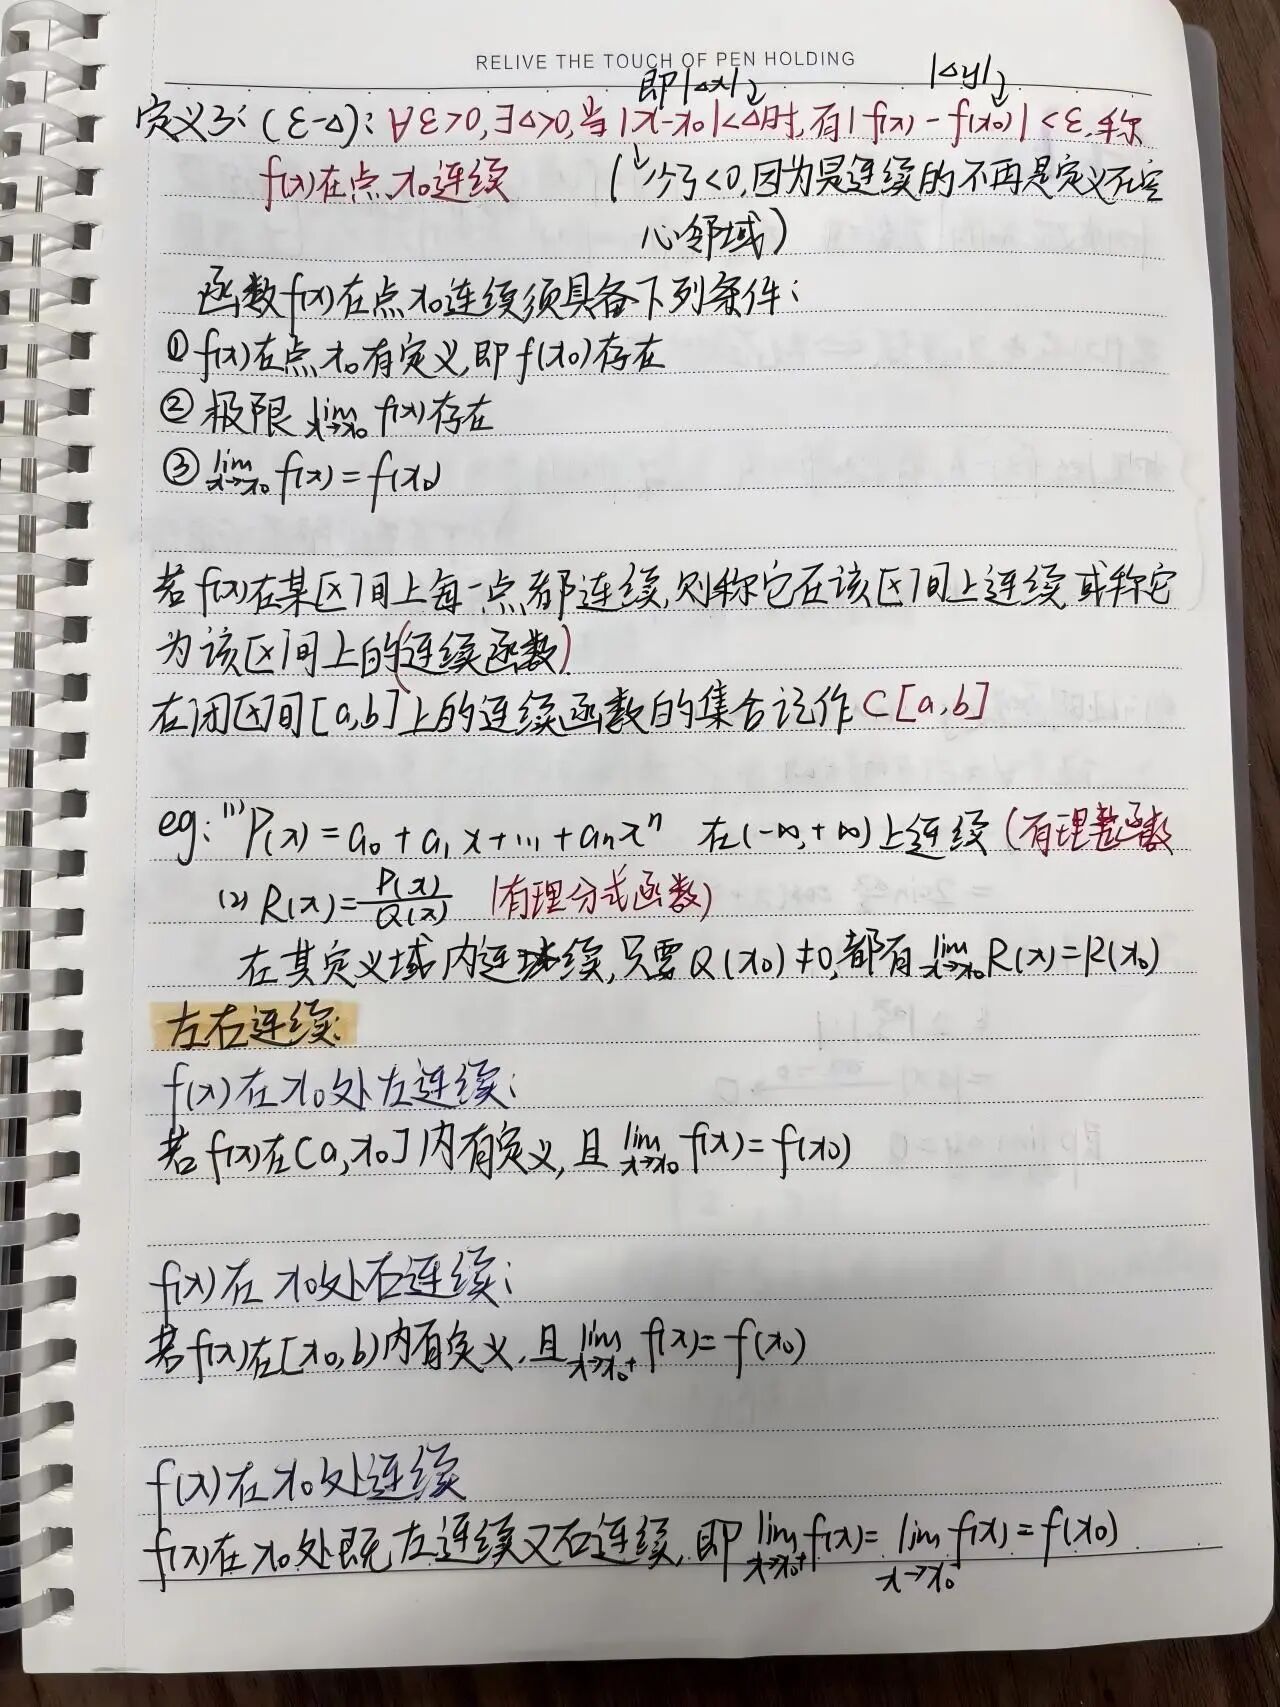 RELIVE THE TOUCH OF PEN HOLDING
即|Δx| |Δy|
定义3: (ε-Δ): ∀ε>0,∃Δ>0,当|x-x₀|<Δ时,有|f(x)-f(x₀)|<ε,称
f(x)在点x₀连续 (↳少了<0,因为是连续的不再是定义在空
心邻域)
函数f(x)在点x₀连续须具备下列条件:
①f(x)在点x₀有定义,即f(x₀)存在
②极限 lim x→x₀ f(x)存在
③lim x→x₀ f(x)=f(x₀)
若f(x)在某区间上每一点都连续,则称它在该区间上连续,或称它
为该区间上的(连续函数)
在闭区间[a,b]上的连续函数的集合记作C[a,b]
eg: (1) P(x)=a₀+a₁x+…+aₙxⁿ 在(-∞,+∞)上连续(有理整函数
(2) R(x)=P(x)/Q(x) (有理分式函数)
在其定义域内连续,只要Q(x₀)≠0,都有lim x→x₀ R(x)=R(x₀)
左右连续:
f(x)在x₀处左连续:
若f(x)在(a,x₀]内有定义,且lim x→x₀⁻ f(x)=f(x₀)
f(x)在x₀处右连续:
若f(x)在[x₀,b)内有定义,且lim x→x₀⁺ f(x)=f(x₀)
f(x)在x₀处连续
f(x)在x₀处既左连续又右连续,即lim x→x₀⁺ f(x)=lim x→x₀⁻ f(x)=f(x₀)